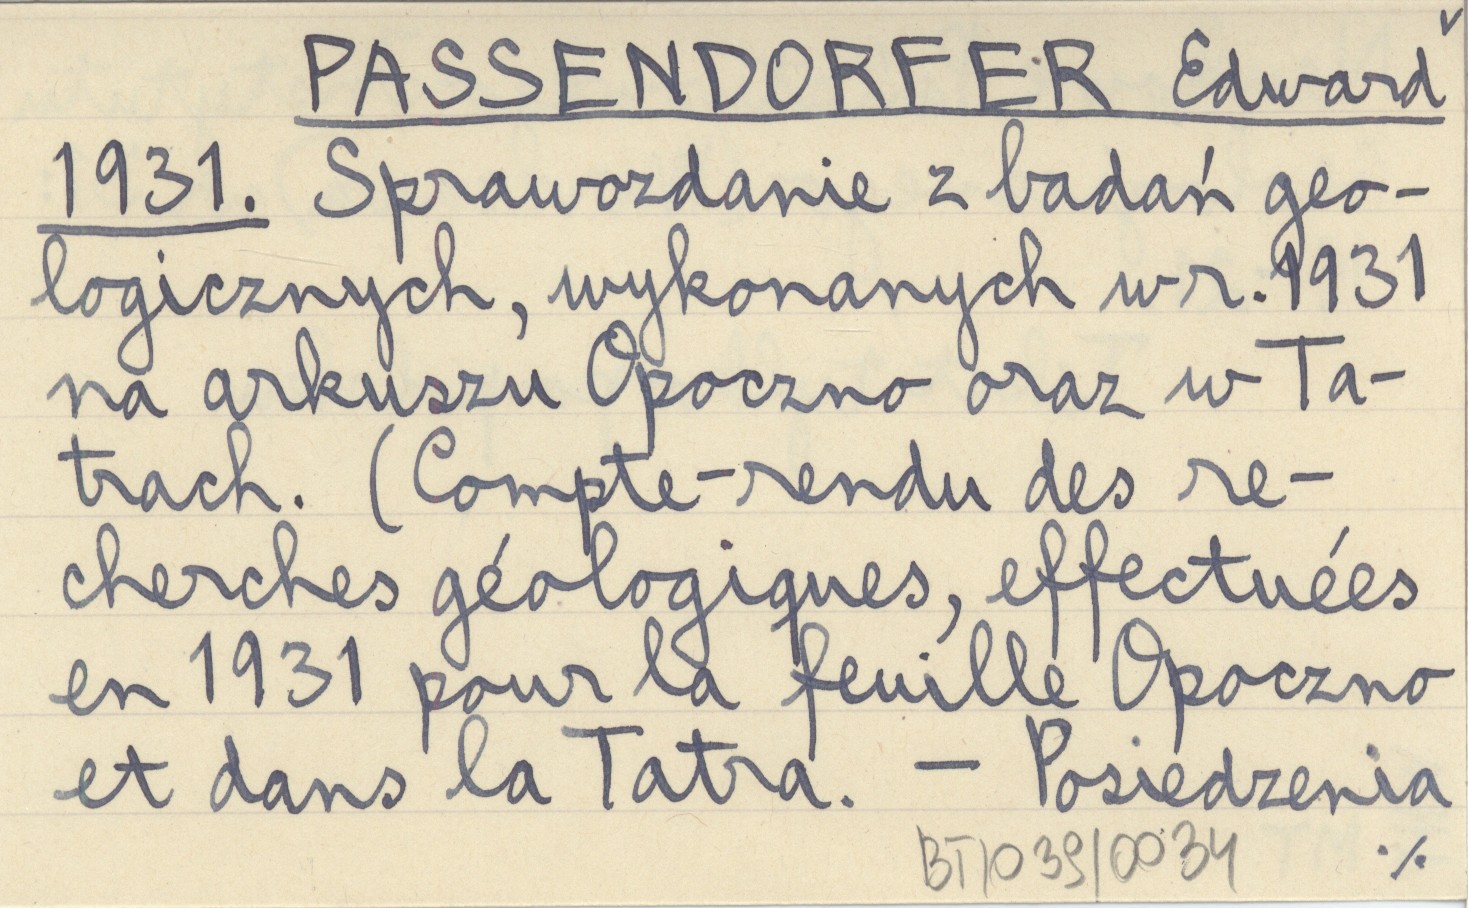 PASSENDORFER Edward
1931. Sprawozdanie z badań geo-
logicznych, wykonanych w r. 1931
na arkuszu Opoczno oraz w Ta-
trach. (Compte-rendu des re-
cherches géologiques, effectuées
en 1931 pour la feuille Opoczno
et dans la Tatra. — Posiedzenia
BT/039/0034 ./.